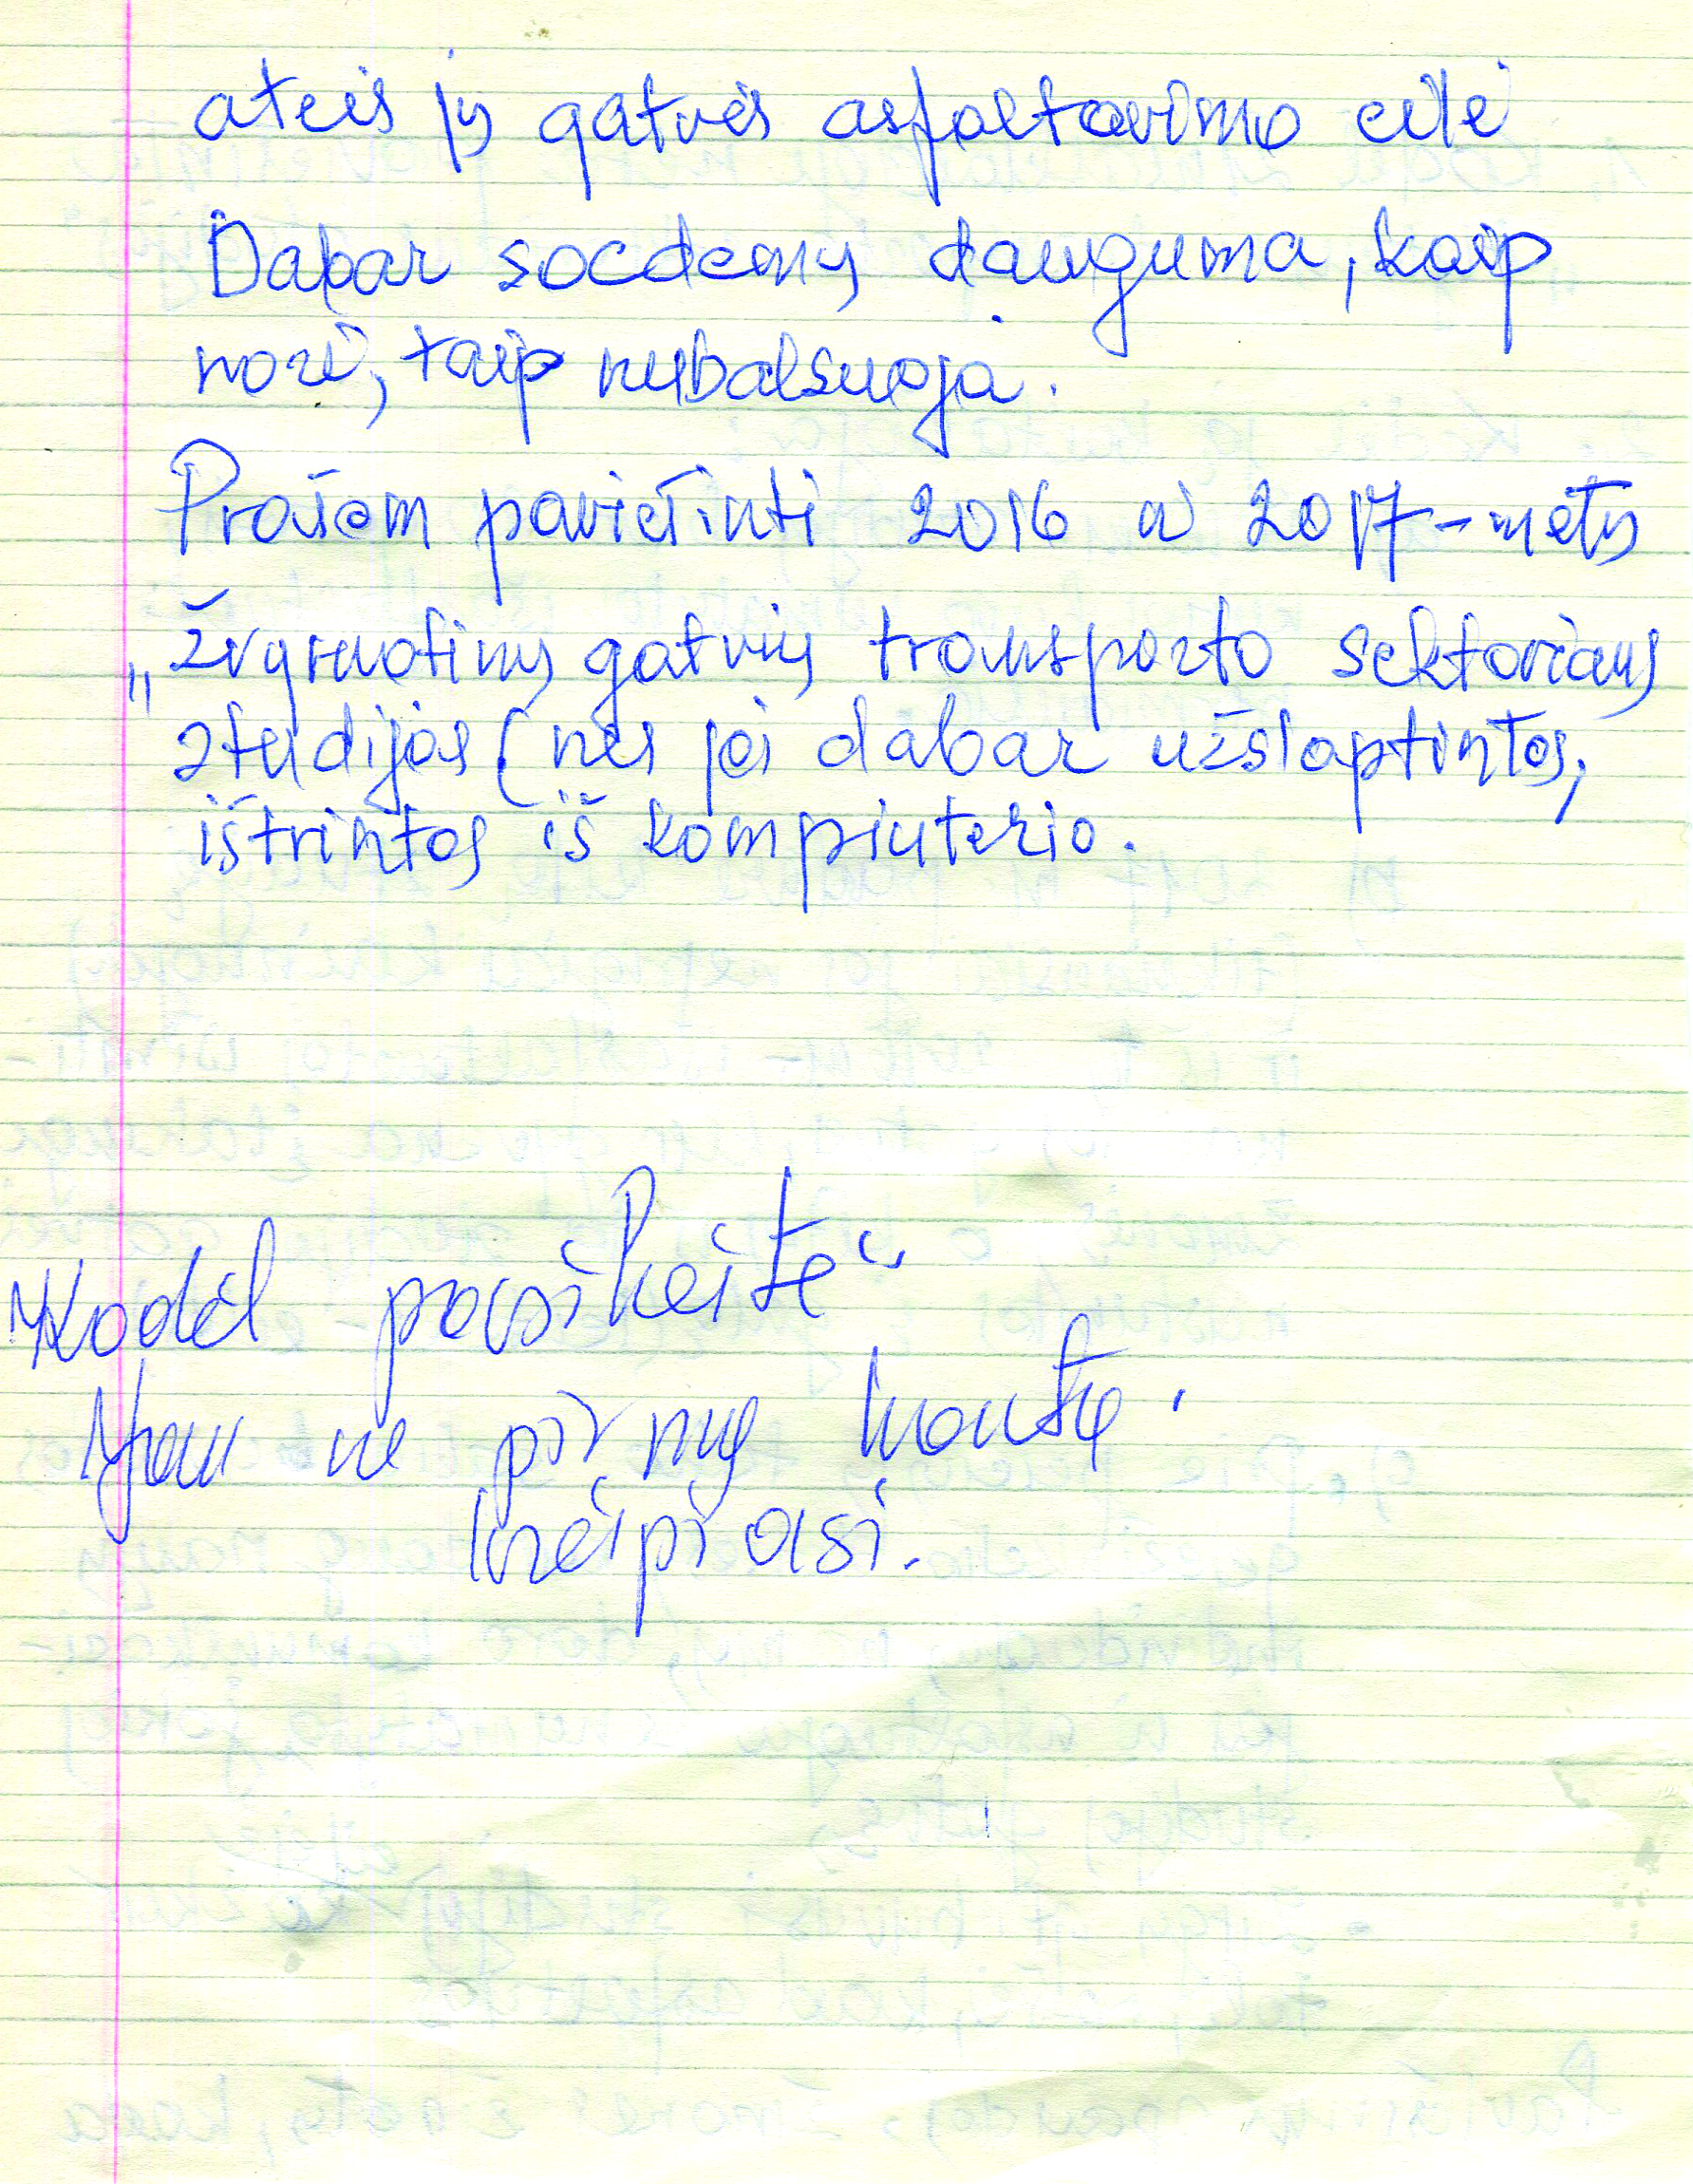 ateis jų gatvės asfaltavimo eilė
Dabar socdemų dauguma, kaip
nori, taip nubalsuoja.
Prašom paviešinti 2016 ir 2017-metų
„žvyruotinų gatvių transporto sektoriaus
studijas (nes jei dabar užslaptintos,
ištrintos iš kompiuterio.
Kodėl pasikeitė
Jau ne pirmą kartą
kreipiasi.